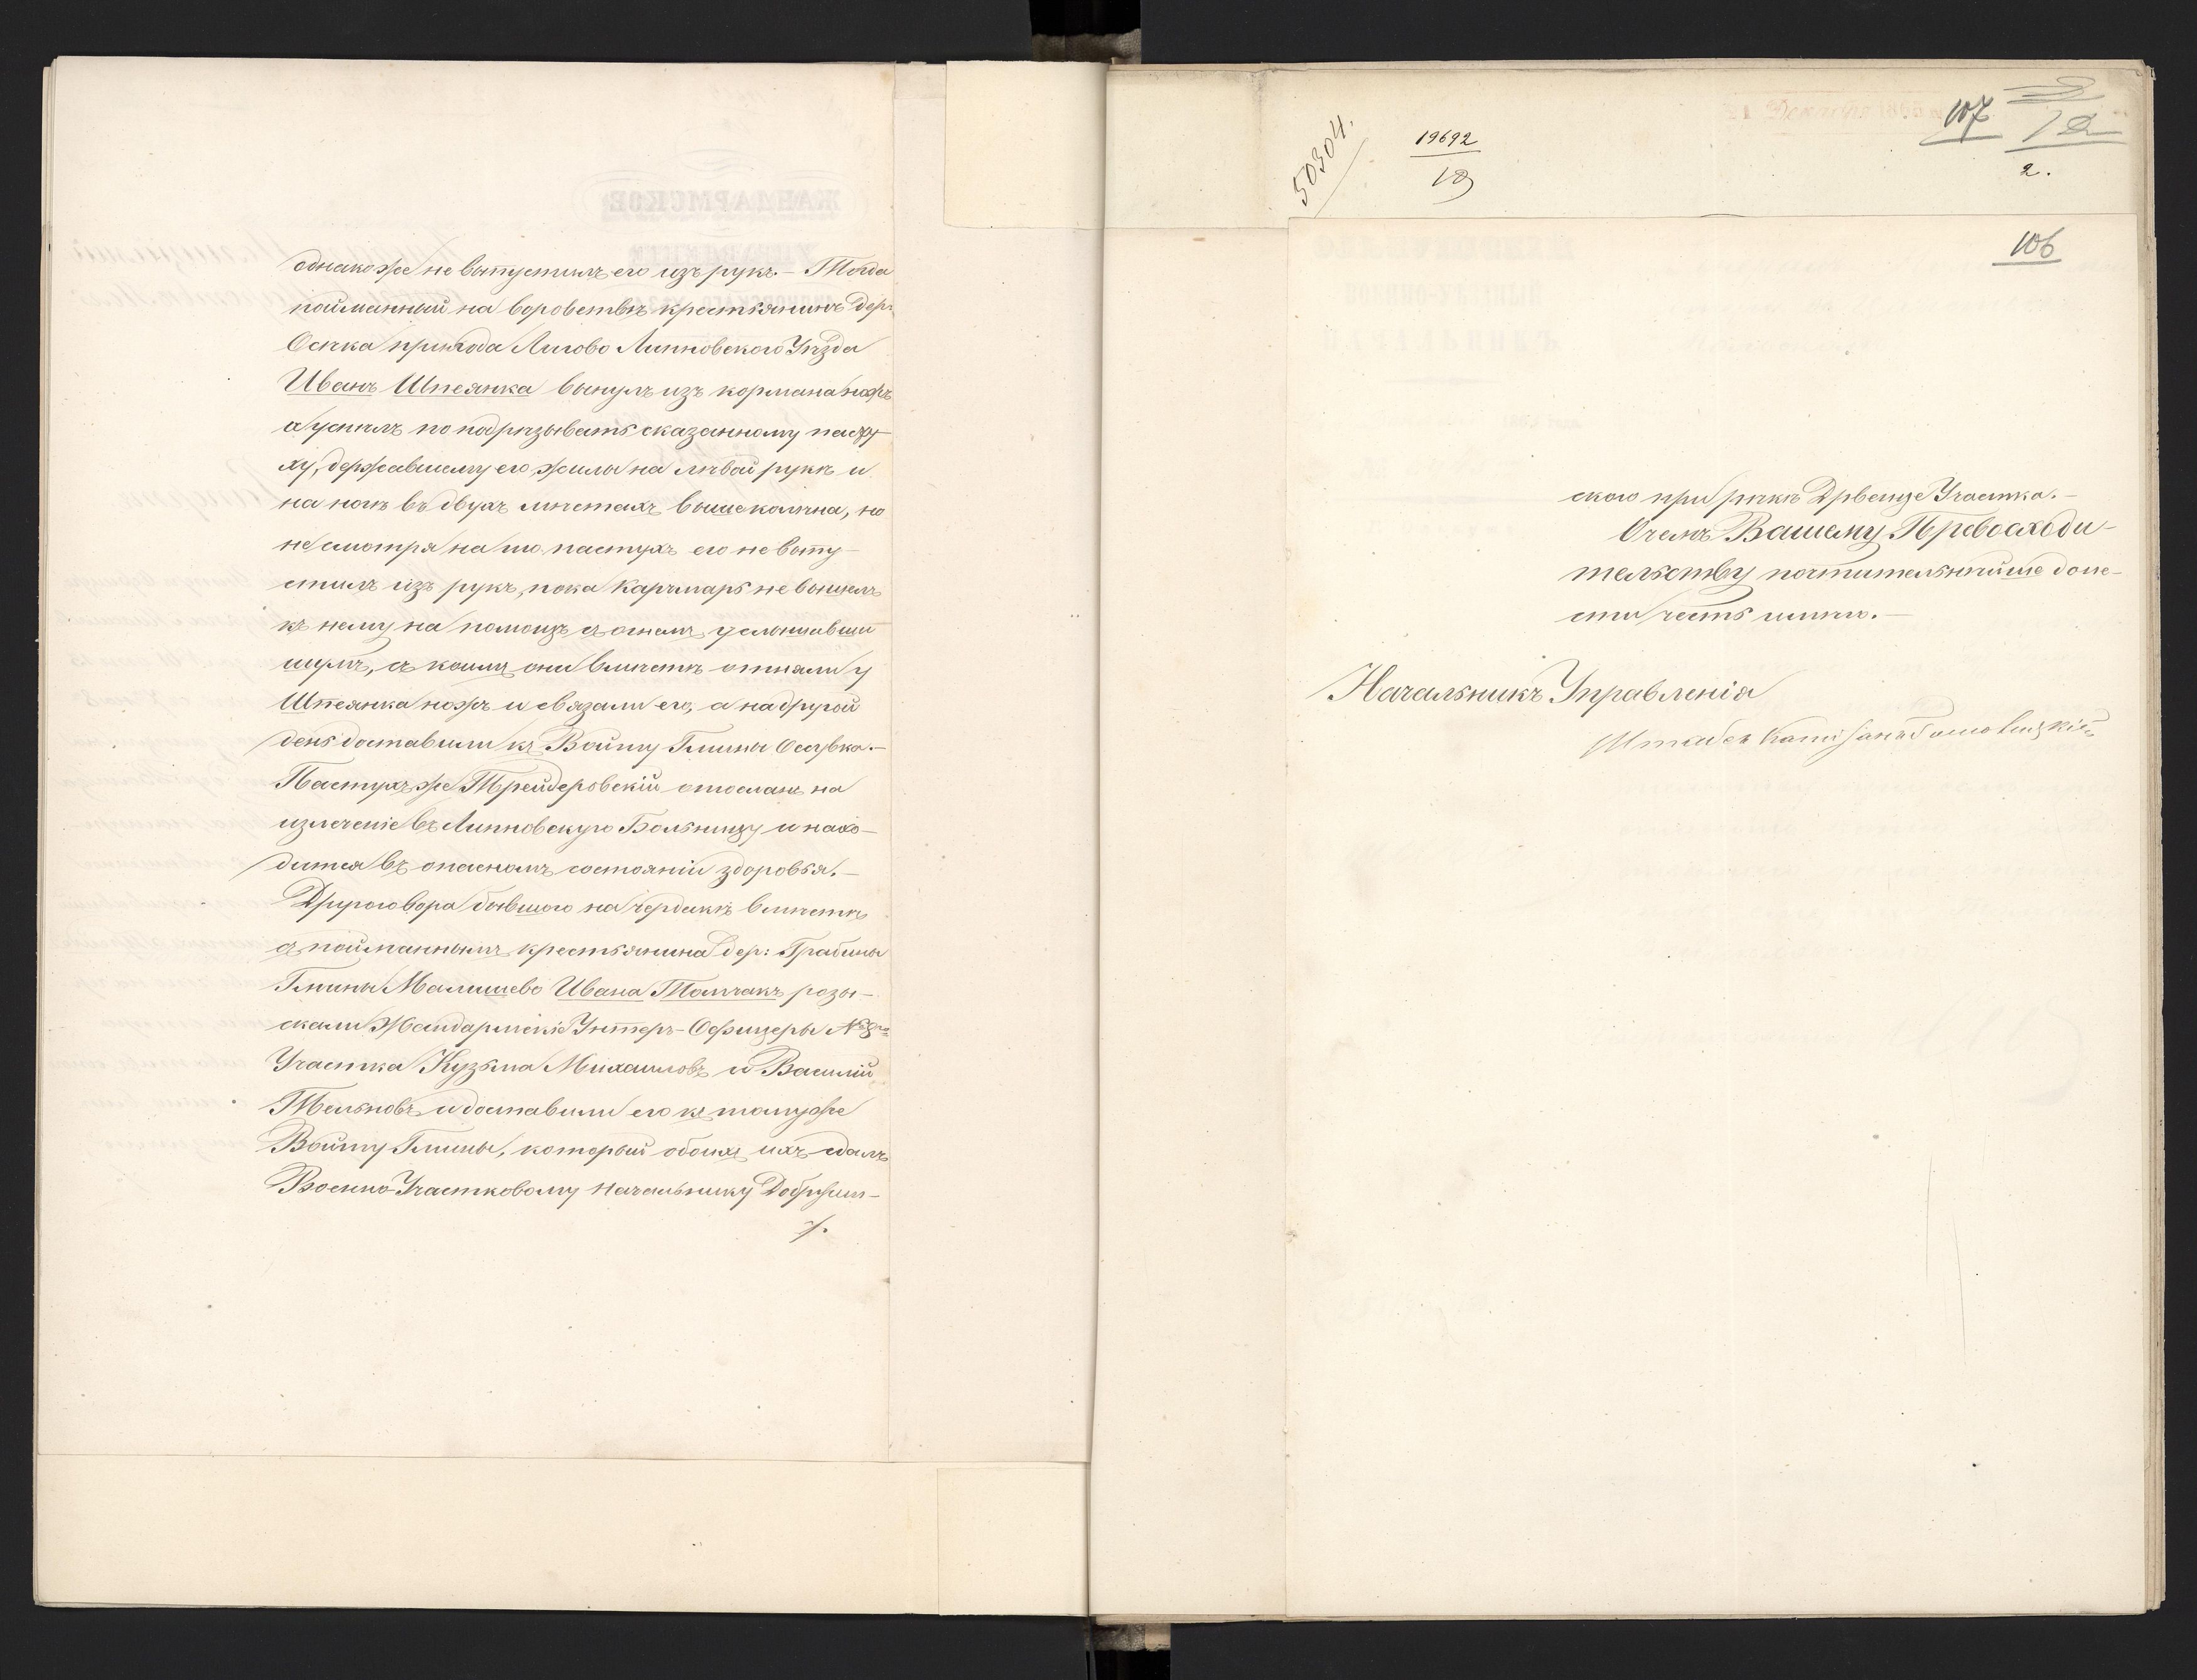 однакоже не выпустилъ его изъ рукъ. – Тогда
пойманный на воровствѣ крестьянинъ дер:
Осѣка прихода Лигово Липновского Уѣзда
Иванъ Шпеянка вынулъ изъ кормана ножъ
а успѣлъ по подрѣзывать сказанному пасту-
ху, державшему его жилы на лѣвой рукѣ и
на ногѣ въ двухъ мѣстахъ выше колѣна, но
не смотря на то пастухъ его не выпу-
стилъ изъ рукъ, пока Карчмарь не вышелъ
къ нему на помощъ съ огнемъ услышавши
шумъ, съ коимъ они вмѣстѣ отняли у
Шпеянка ножъ и связали его, а на другой
день доставили къ Войту Гмины Осувка. –
Пастухъ же Трейдеровскій отосланъ на
излеченіе въ Липновскую Больницу и нахо-
дится въ опасномъ состояніи здоровья. –
Другого вора бывшого на чердакѣ вмѣстѣ
съ пойманнымъ крестьянина дер: Грабины
Гмины Малишево Ивана Томчакъ розы-
скали Жандармскіе Унтеръ-Офицеры № 8го
Участка Кузьма Михаиловъ и Василій
Тельновъ и доставили его къ томуже
Войту Гмины, который обоихъ ихъ сдалъ
Военно-Участковому Начальнику Добржин-
/.
50304.
19692
19
107
2.
106
ского при рѣкѣ Дрвенце Участка. –
О чемъ Вашему Превосходи-
тельству почтительнѣйше доне-
сти честь имѣю. –
Начальникъ Управленія
Штабсъ Капитанъ